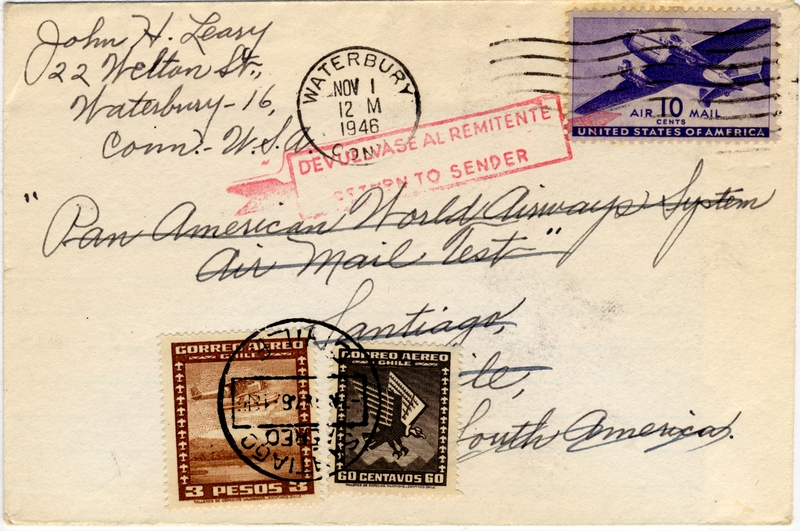 John H. Leary
22 Welton St.,
Waterbury-16,
Conn.-U.S.A.
WATERBURY
NOV 1
12 M
1946
CONN.
AIR 10 MAIL
CENTS
UNITED STATES OF AMERICA
DEVUELVASE AL REMITENTE
RETURN TO SENDER
"Pan American World Airways System
Air Mail Test"
Santiago,
ile,
South America.
CORREO AEREO
CHILE
3 PESOS 3
CORREO AEREO
CHILE
60 CENTAVOS 60